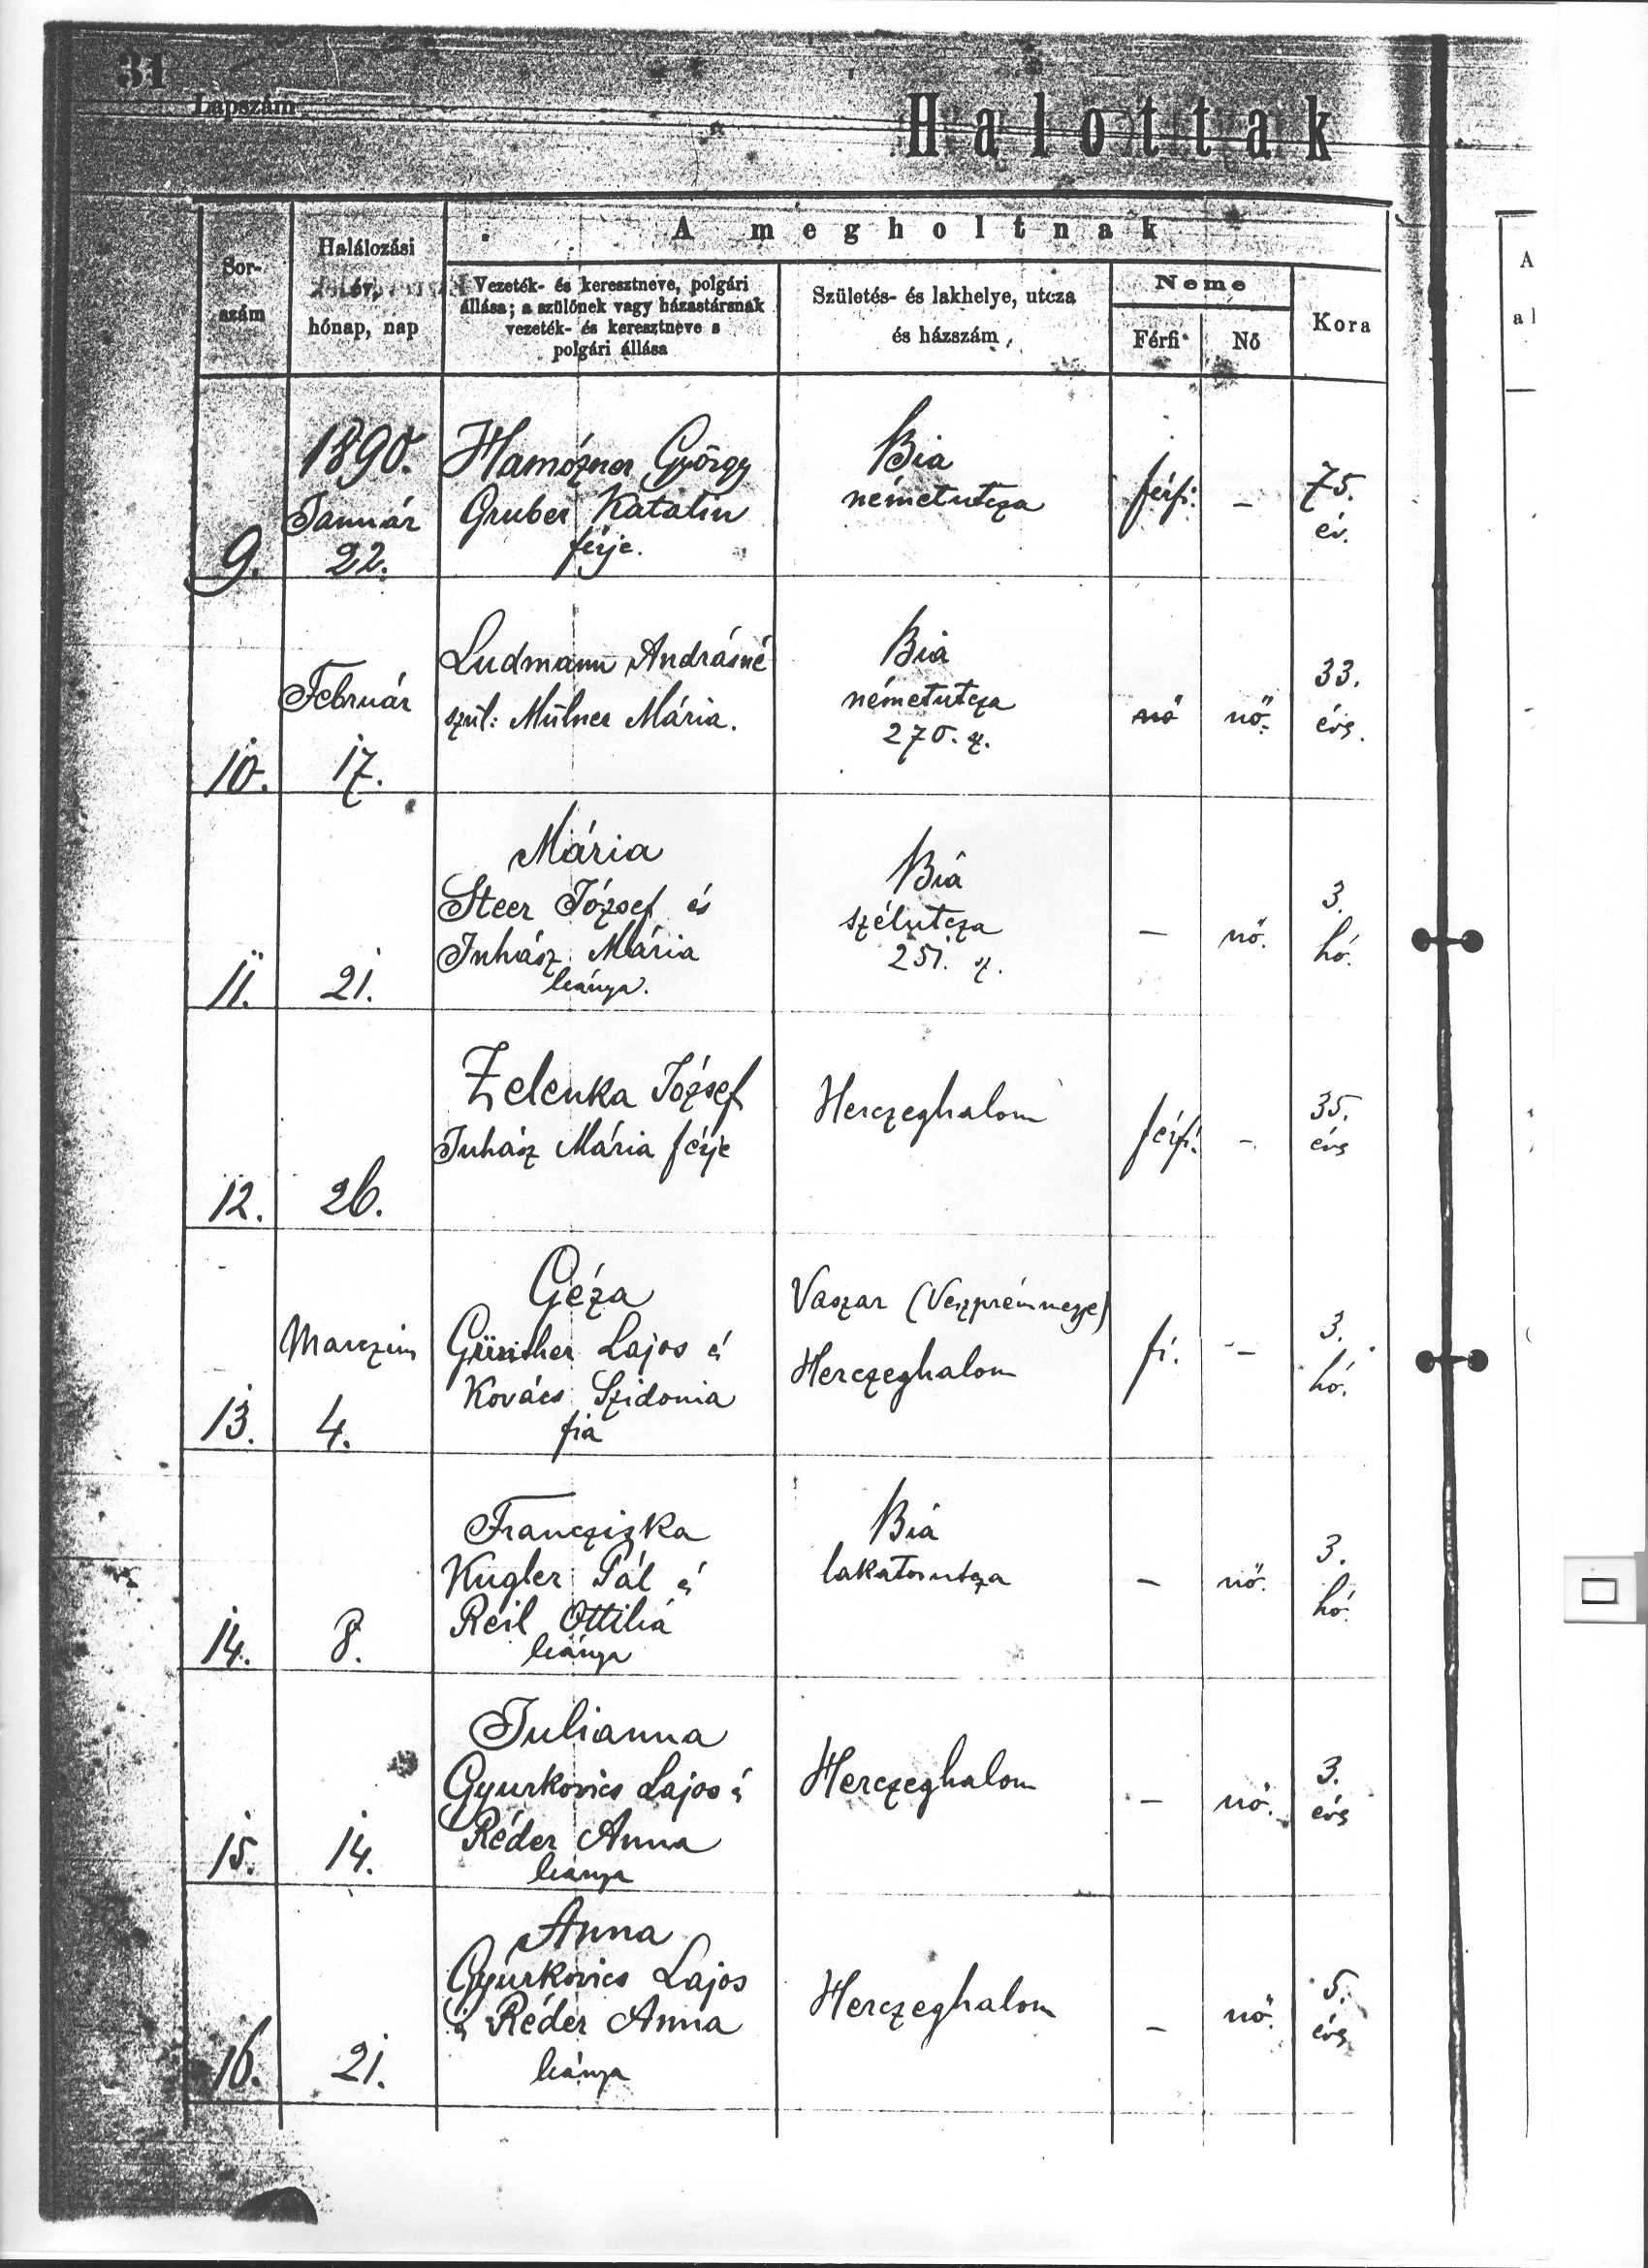 31
Lapszám
Halottak
A megholtnak
Sor-
szám
Halálozási
év,
hónap, nap
Vezeték- és keresztneve, polgári
állása; a szülőnek vagy házastársnak
vezeték- és keresztneve s
polgári állása
Születés- és lakhelye, utcza
és házszám
Neme
Férfi
Nő
Kora
9.
1890.
Január
22.
György
Gruber Katalin
férje.
Bia
németutcza
férfi.
–
75.
év.
10.
Február
17.
Ludmann Andrásné
szül: Mülner Mária.
Bia
németutcza
270. sz.
nő
nő.
33.
éves.
11.
21.
Mária
Steer József és
Juhász Mária
leánya.
Bia
szélutcza
251. sz.
–
nő.
3.
hó.
12.
26.
Zelenka József
Juhász Mária férje
Herczeghalom
férfi.
–
35.
éves
13.
Marczius
4.
Géza
Günther Lajos és
Kovács Szidonia
fia
Vaszar (Veszprémmegye)
Herczeghalom
fi.
–
3.
hó.
14.
8.
Franczizka
Kugler Pál és
Reil Ottilia
leánya
Bia
lakatosutcza
–
nő.
3.
hó.
15.
14.
Julianna
Gyurkovics Lajos és
Réder Anna
leánya
Herczeghalom
–
nő.
3.
éves
16.
21.
Anna
Gyurkovics Lajos
és Réder Anna
leánya
Herczeghalom
–
nő.
5.
éves